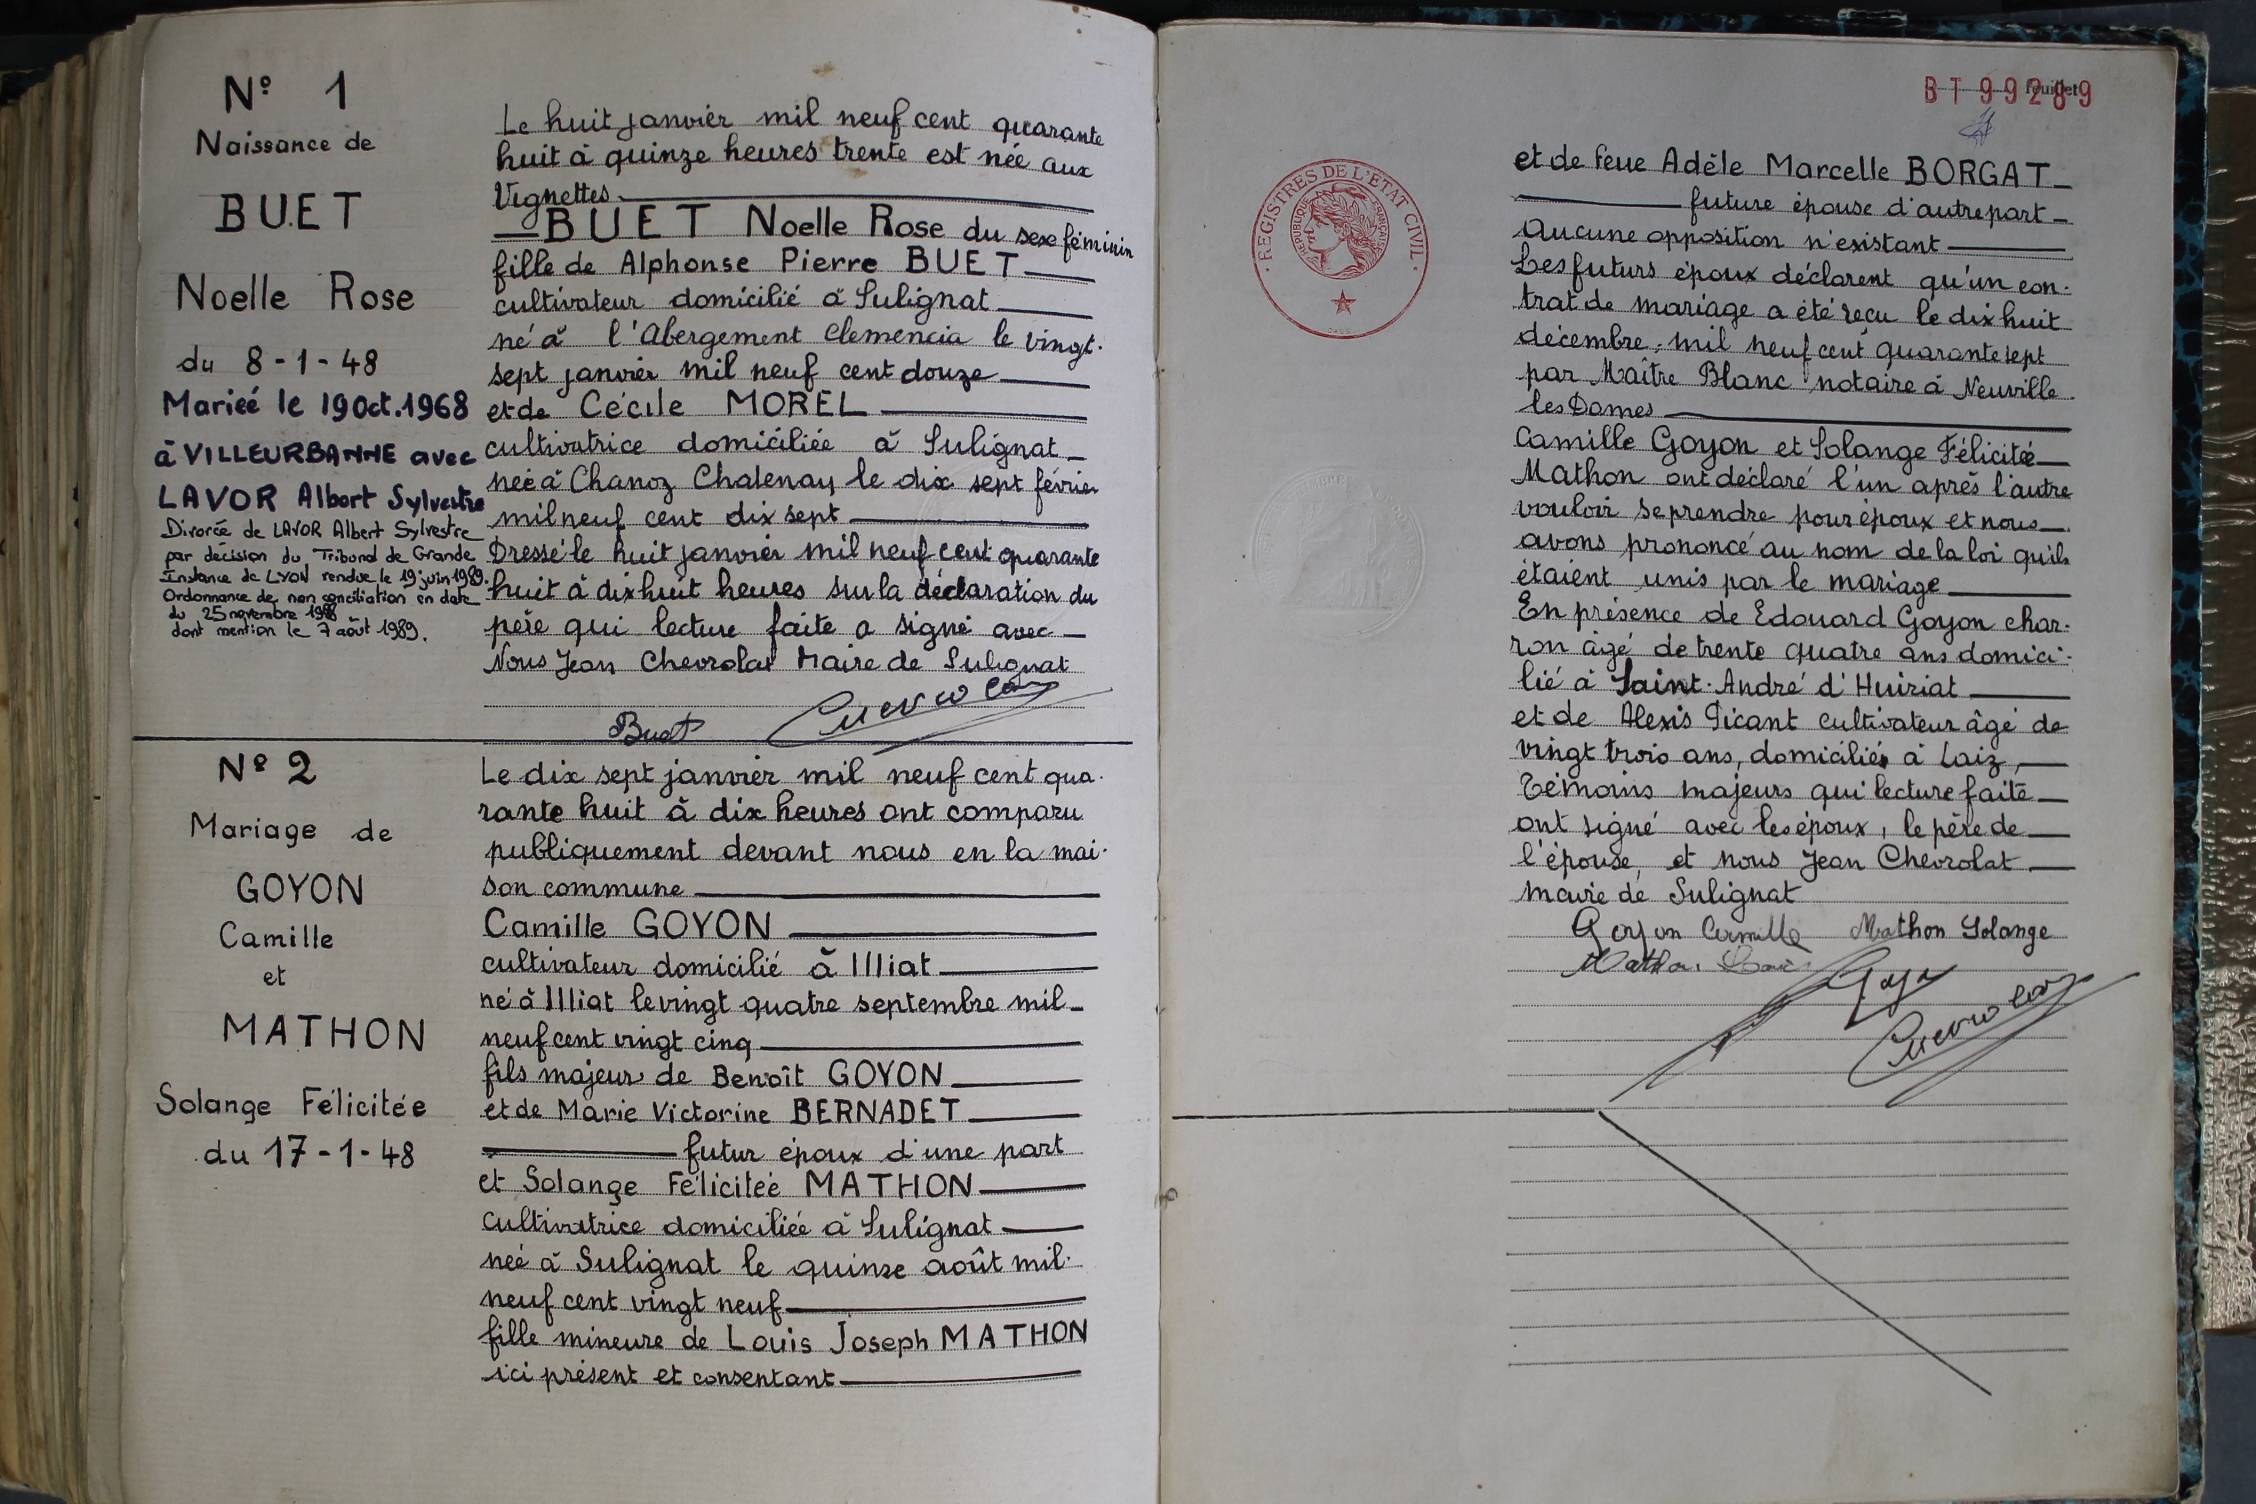 N° 1
Naissance de
BUET
Noelle Rose
du 8-1-48
Mariée le 19 Oct. 1968
à VILLEURBANNE avec
LAVOR Albert Sylvestre
Divorcée de LAVOR Albert Sylvestre
par décision du Tribunal de Grande
Instance de LYON rendue le 19 juin 1989.
Ordonnance de non conciliation en date
du 25 novembre 1988
dont mention le 7 août 1989.
Le huit janvier mil neuf cent quarante
huit à quinze heures trente est née aux
Vignettes
BUET Noelle Rose du sexe féminin
fille de Alphonse Pierre BUET
cultivateur domicilié à Sulignat
né à l'Abergement Clemencia le vingt.
sept janvier mil neuf cent douze
et de Cécile MOREL
cultivatrice domiciliée à Sulignat
née à Chanoz Chatenay le dix sept février
mil neuf cent dix sept
Dressé le huit janvier mil neuf cent quarante
huit à dix huit heures sur la déclaration du
père qui lecture faite a signé avec
Nous Jean Chevrolat Maire de Sulignat
Buet Chevrolat
N° 2
Mariage de
GOYON
Camille
et
MATHON
Solange Félicitée
du 17-1-48
Le dix sept janvier mil neuf cent qua.
rante huit à dix heures ont comparu
publiquement devant nous en la mai.
son commune
Camille GOYON
cultivateur domicilié à Illiat
né à Illiat le vingt quatre septembre mil
neuf cent vingt cinq
fils majeur de Benoît GOYON
et de Marie Victorine BERNADET
futur époux d'une part
et Solange Félicitée MATHON
cultivatrice domiciliée à Sulignat
née à Sulignat le quinze août mil.
neuf cent vingt neuf
fille mineure de Louis Joseph MATHON
ici présent et consentant
BT99289
feuillet
REGISTRES DE L'ETAT CIVIL
REPUBLIQUE FRANÇAISE
et de feue Adèle Marcelle BORGAT
future épouse d'autre part
Aucune opposition n'existant
Les futurs époux déclarent qu'un con.
trat de mariage a été reçu le dix huit
décembre, mil neuf cent quarante sept
par Maître Blanc notaire à Neuville
les Dames
Camille Goyon et Solange Félicitée
Mathon ont déclaré l'un après l'autre
vouloir se prendre pour époux et nous
avons prononcé au nom de la loi qu'ils
étaient unis par le mariage
En présence de Edouard Goyon char.
ron âgé de trente quatre ans domici.
lié à Saint. André d'Huiriat
et de Alexis Picant cultivateur âgé de
vingt trois ans, domiciliés à Laiz,
Témoins majeurs qui lecture faite
ont signé avec les époux, le père de
l'épouse, et nous Jean Chevrolat
maire de Sulignat
Goyon Camille Mathon Solange
Mathon Louis
Goyon
Chevrolat